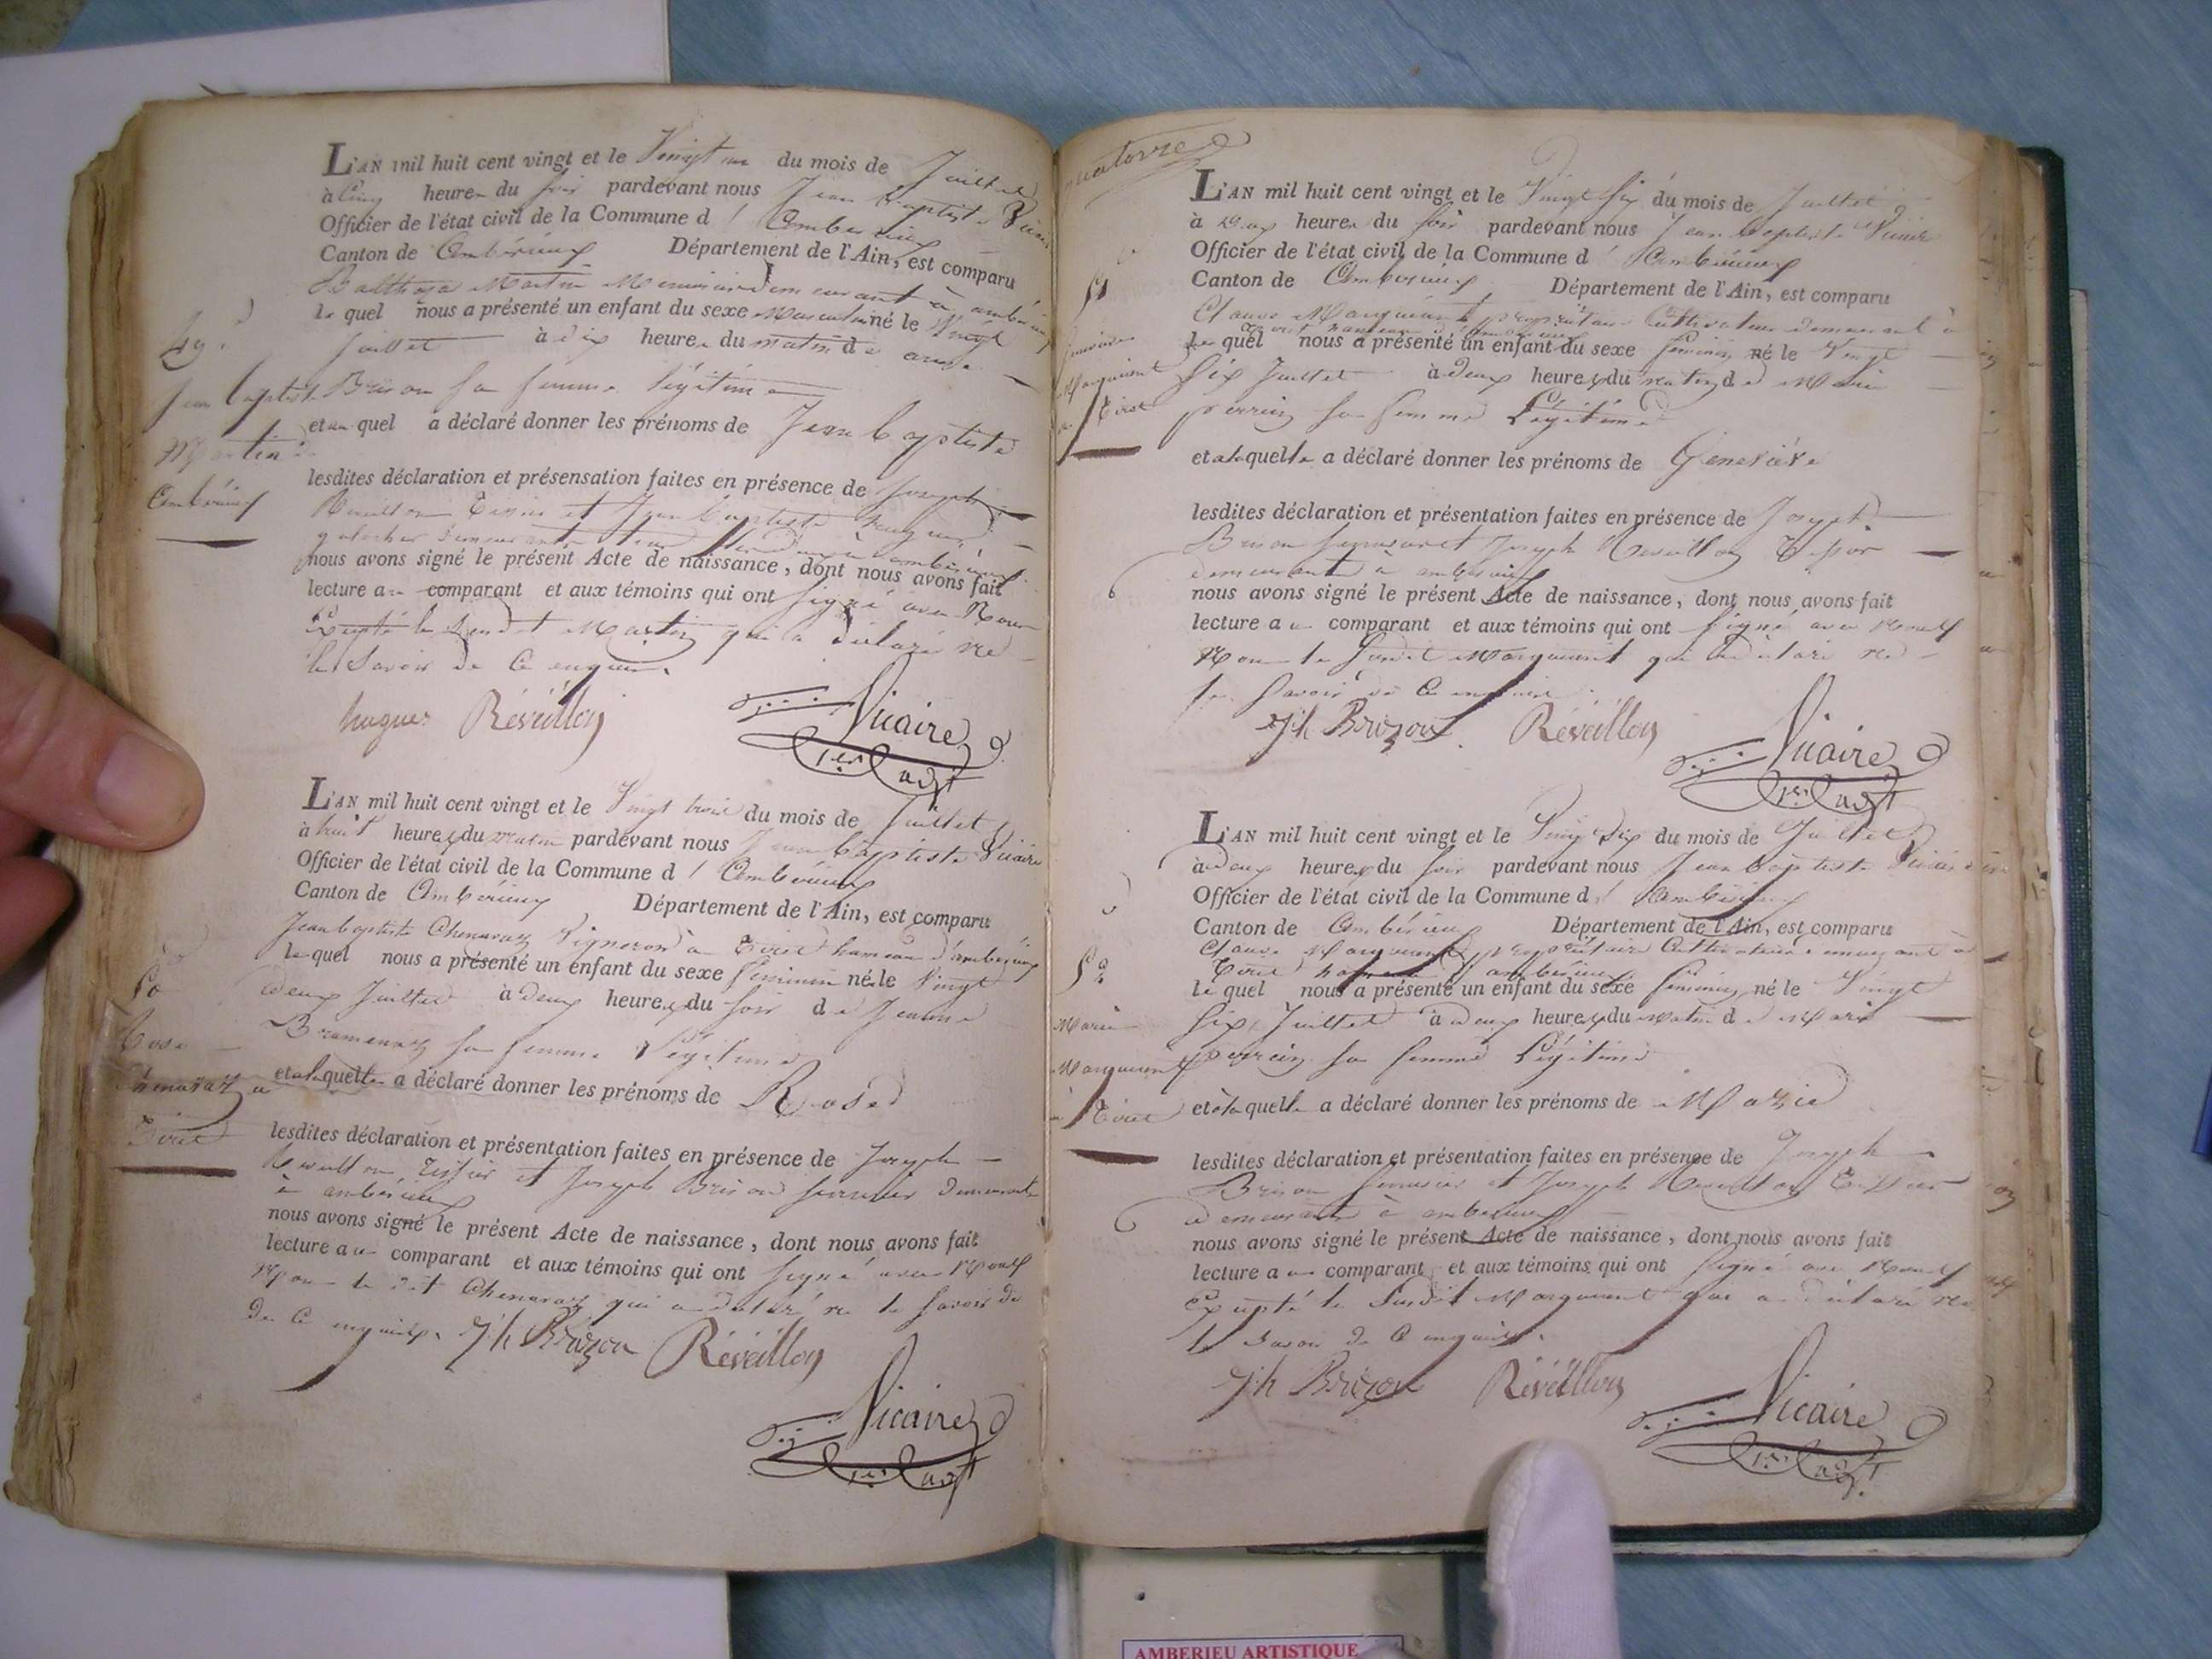 L'AN mil huit cent vingt et le Vingt un du mois de Juillet
à Cinq heures du soir pardevant nous Jean Baptiste Vicaire
Officier de l'état civil de la Commune d' Ambérieux
Canton de Ambérieux Département de l'Ain, est comparu
Balthasar Martin Menuisier demeurant à ambérieux
le quel nous a présenté un enfant du sexe Masculin né le Vingt
Juillet à dix heures du matin de
49
Jean Baptiste
Martin
Ambérieux
Brison sa femme légitime
et au quel a déclaré donner les prénoms de Jean Baptiste
lesdites déclaration et présensation faites en présence de Joseph
Réveillon Tissier et Jean Baptiste huguet
demeurants à ambérieux
nous avons signé le présent Acte de naissance, dont nous avons fait
lecture au comparant et aux témoins qui ont signé avec Nous
Excepté le Susdit Martin qui a déclaré ne
le Savoir de Ce enquis.
huguet Réveillon Vicaire
1er adjt
L'AN mil huit cent vingt et le Vingt trois du mois de Juillet
à huit heures du matin pardevant nous Jean Baptiste Vicaire
Officier de l'état civil de la Commune d' Ambérieux
Canton de Ambérieux Département de l'Ain, est comparu
Jean baptiste Chenavaz Vigneron à Tiret hameau d'ambérieux
le quel nous a présenté un enfant du sexe féminin né le Vingt
deux Juillet à deux heures du soir de Jeanne
50
Rose
Chenavaz a
Tiret
Bramenaz sa femme légitime
et a laquelle a déclaré donner les prénoms de Rose
lesdites déclaration et présentation faites en présence de Joseph
Reveillon Tissier et Joseph Brison serrurier demeurants
à ambérieux
nous avons signé le présent Acte de naissance, dont nous avons fait
lecture au comparant et aux témoins qui ont signé avec Nous
Non le dit Chenavaz qui a déclaré ne le savoir de
de Ce enquis. Jh Brizon Réveillon
Vicaire
1er adjt
quatorze
L'AN mil huit cent vingt et le Vingt Six du mois de Juillet
à deux heures du soir pardevant nous Jean Baptiste Vicaire
Officier de l'état civil de la Commune d' Ambérieux
Canton de Ambérieux Département de l'Ain, est comparu
Claude Margument propriétaire Cultivateur demeurant à
Tiret hameau d'ambérieux
le quel nous a présenté un enfant du sexe féminin né le Vingt
51
Genevieve
Margument
a Tiret
Six Juillet à deux heures du matin de Marie
perrein sa femme Légitime
et a laquelle a déclaré donner les prénoms de Genevieve
lesdites déclaration et présentation faites en présence de Joseph
Brison serrurier et Joseph Reveillon Tissier
demeurants à ambérieux
nous avons signé le présent Acte de naissance, dont nous avons fait
lecture au comparant et aux témoins qui ont signé avec Nous
Non le Susdit Margument qui a déclaré ne
le Savoir de Ce enquis.
Jh Brizon Réveillon Vicaire
1er adjt
L'AN mil huit cent vingt et le Vingt Six du mois de Juillet
à deux heures du soir pardevant nous Jean Baptiste Vicaire
Officier de l'état civil de la Commune d' Ambérieux
Canton de Ambérieux Département de l'Ain, est comparu
Claude Margument propriétaire Cultivateur demeurant à
Tiret hameau d'ambérieux
le quel nous a présenté un enfant du sexe féminin né le Vingt
52
Marie
Margument
a Tiret
Six Juillet à deux heures du Matin de Marie
perrein sa femme Légitime
et à laquelle a déclaré donner les prénoms de Marie
lesdites déclaration et présentation faites en présence de Joseph
Brison serrurier et Joseph Reveillon Tissier
demeurants à ambérieux
nous avons signé le présent Acte de naissance, dont nous avons fait
lecture au comparant et aux témoins qui ont signé avec Nous
Excepté le Susdit Margument qui a déclaré ne
le Savoir de Ce enquis.
Jh Brizon Réveillon Vicaire
1er adjt
AMBERIEU ARTISTIQUE